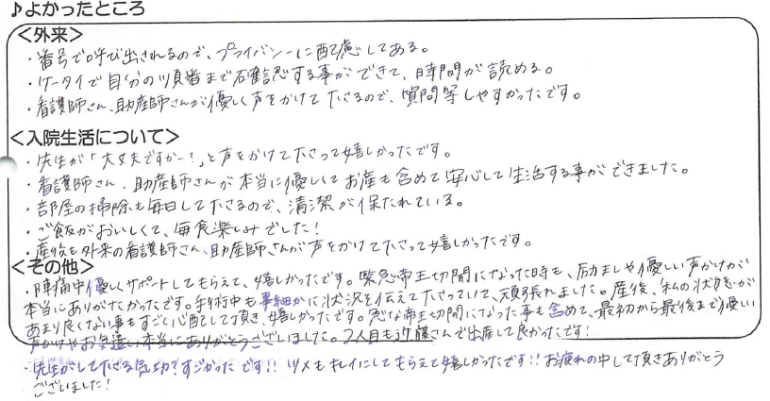 ♪よかったところ
<外来>
・番号で呼び出されるので、プライバシーに配慮してある。
・ケータイで自分の順番まで確認する事ができて、時間が読める。
・看護師さん、助産師さんが優しく声をかけて下さるので、質問等しやすかったです。
<入院生活について>
・先生が「大丈夫ですかー?」と声をかけて下さって嬉しかったです。
・看護師さん、助産師さんが本当に優しくてお産も含めて安心して生活する事ができました。
・部屋の掃除も毎日して下さるので、清潔が保たれている。
・ご飯がおいしくて、毎食楽しみでした!
・産後も外来の看護師さん、助産師さんが声をかけて下さって嬉しかったです。
<その他>
・陣痛中優しくサポートしてもらえて、嬉しかったです。緊急帝王切開になった時も、励ましや優しい声かけが
本当にありがたかったです。手術中も事細かに状況を伝えて下さっていて、頑張れました。産後、私の状態が
あまり良くない事もすごく心配して頂き、嬉しかったです。急な帝王切開になった事も含めて、最初から最後まで優しい
声かけやお気遣い本当にありがとうございました。2人目も近藤さんで出産して良かったです!
・先生がして下さる気功?すごかったです!!ツメもキレイにしてもらえて嬉しかったです!!お疲れの中して頂きありがとう
ございました!